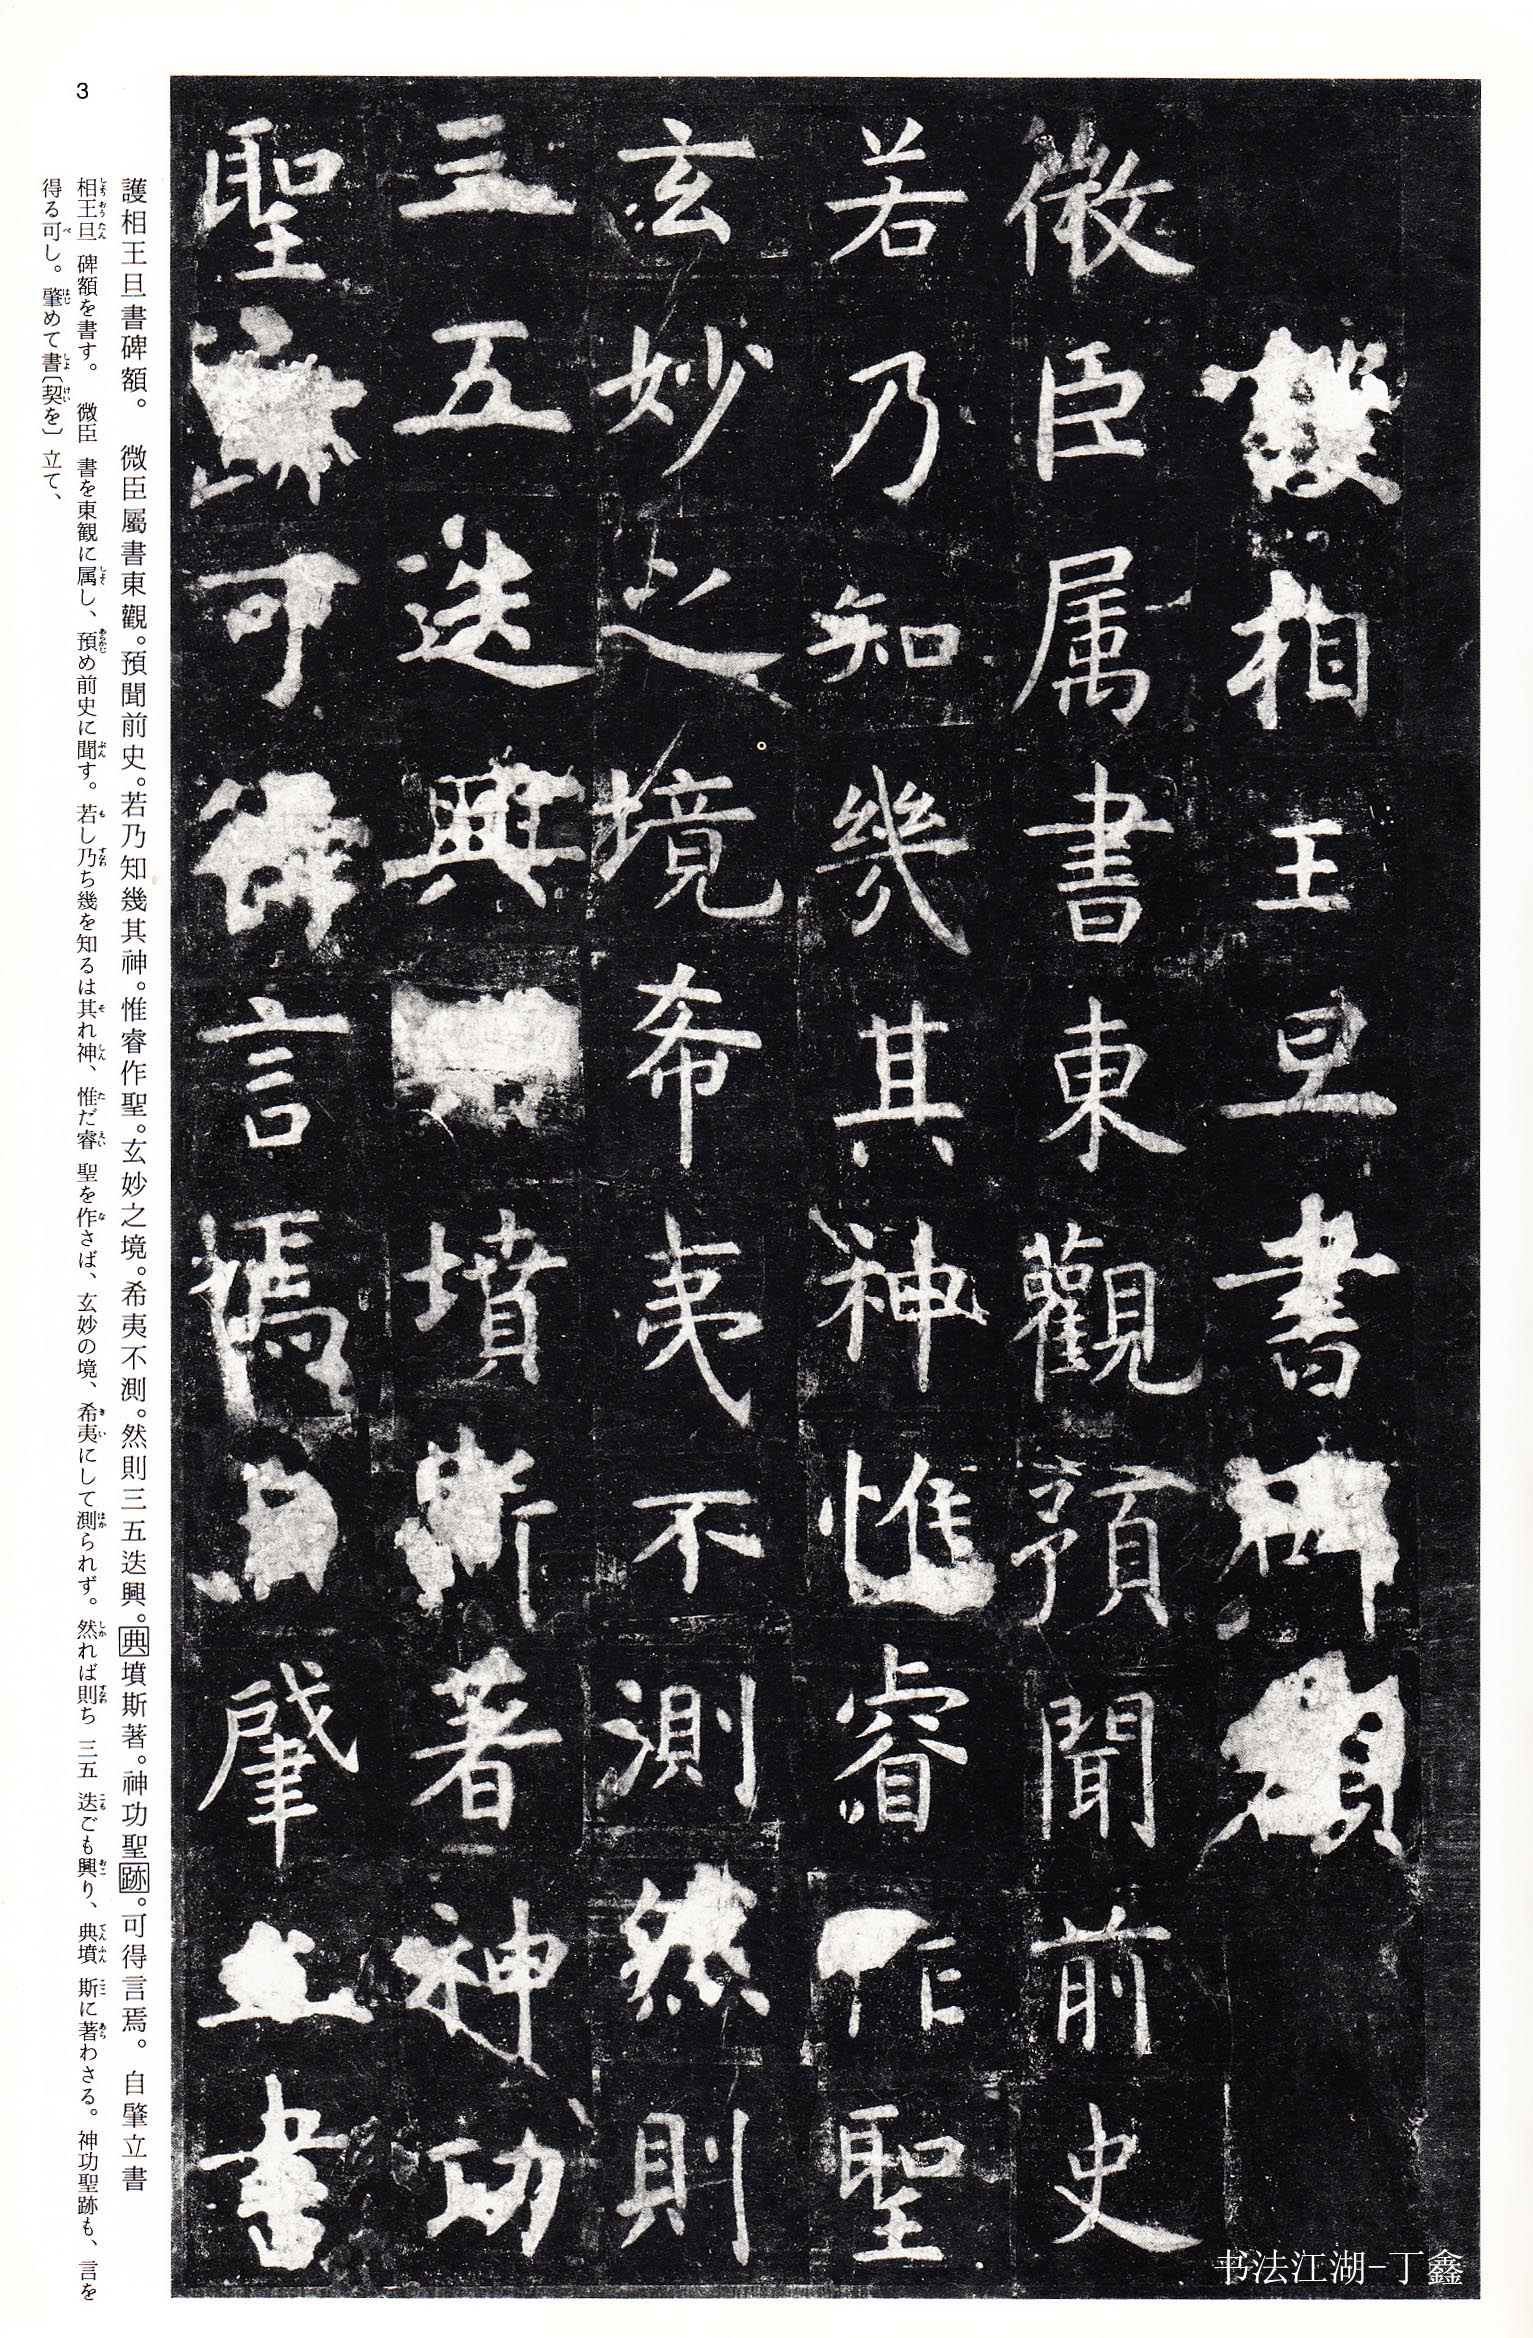 護相王旦書碑額
微臣属書東觀預聞前史
若乃知幾其神惟睿作聖
玄妙之境希夷不測然則
三五迭興墳斯著神功
聖可得言焉自肇立書
护相王旦書碑額。 微臣屬書東觀。預聞前史。若乃知幾其神。惟睿作聖。玄妙之境。希夷不測。然則三五迭興。典墳斯著。神功聖跡。可得言焉。 自肇立書
相王旦 碑額を書す。 微臣 書を東観に属し、預め前史に聞す。若し乃ち幾を知るは其れ神、惟だ睿 聖を作さば、玄妙の境、希夷にして測られず。然れば則ち 三五 迭ごも興り、典墳 斯に著わさる。神功聖跡も、言を
得る可し。肇めて書〔契を〕立て、
3
书法江湖-丁鑫